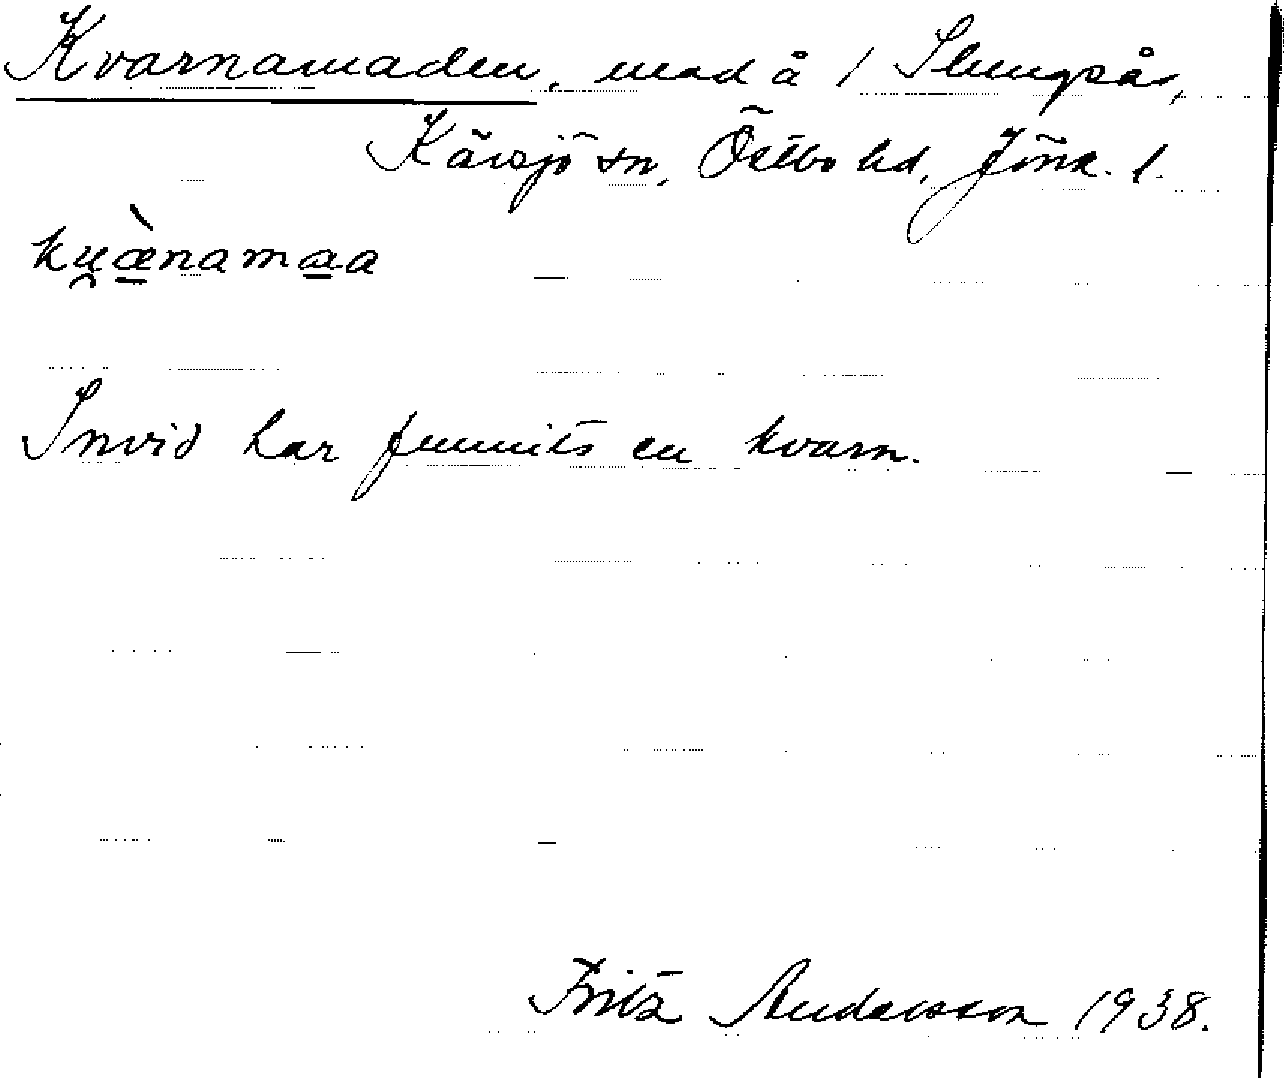 Kvarnamaden, mad å 1 Slungsås,
Kävsjö sn, Östbo hd, Jönk. l.
ku̯æ̀namaa
Invid har funnits en kvarn.
Fritz Andersson 1938.